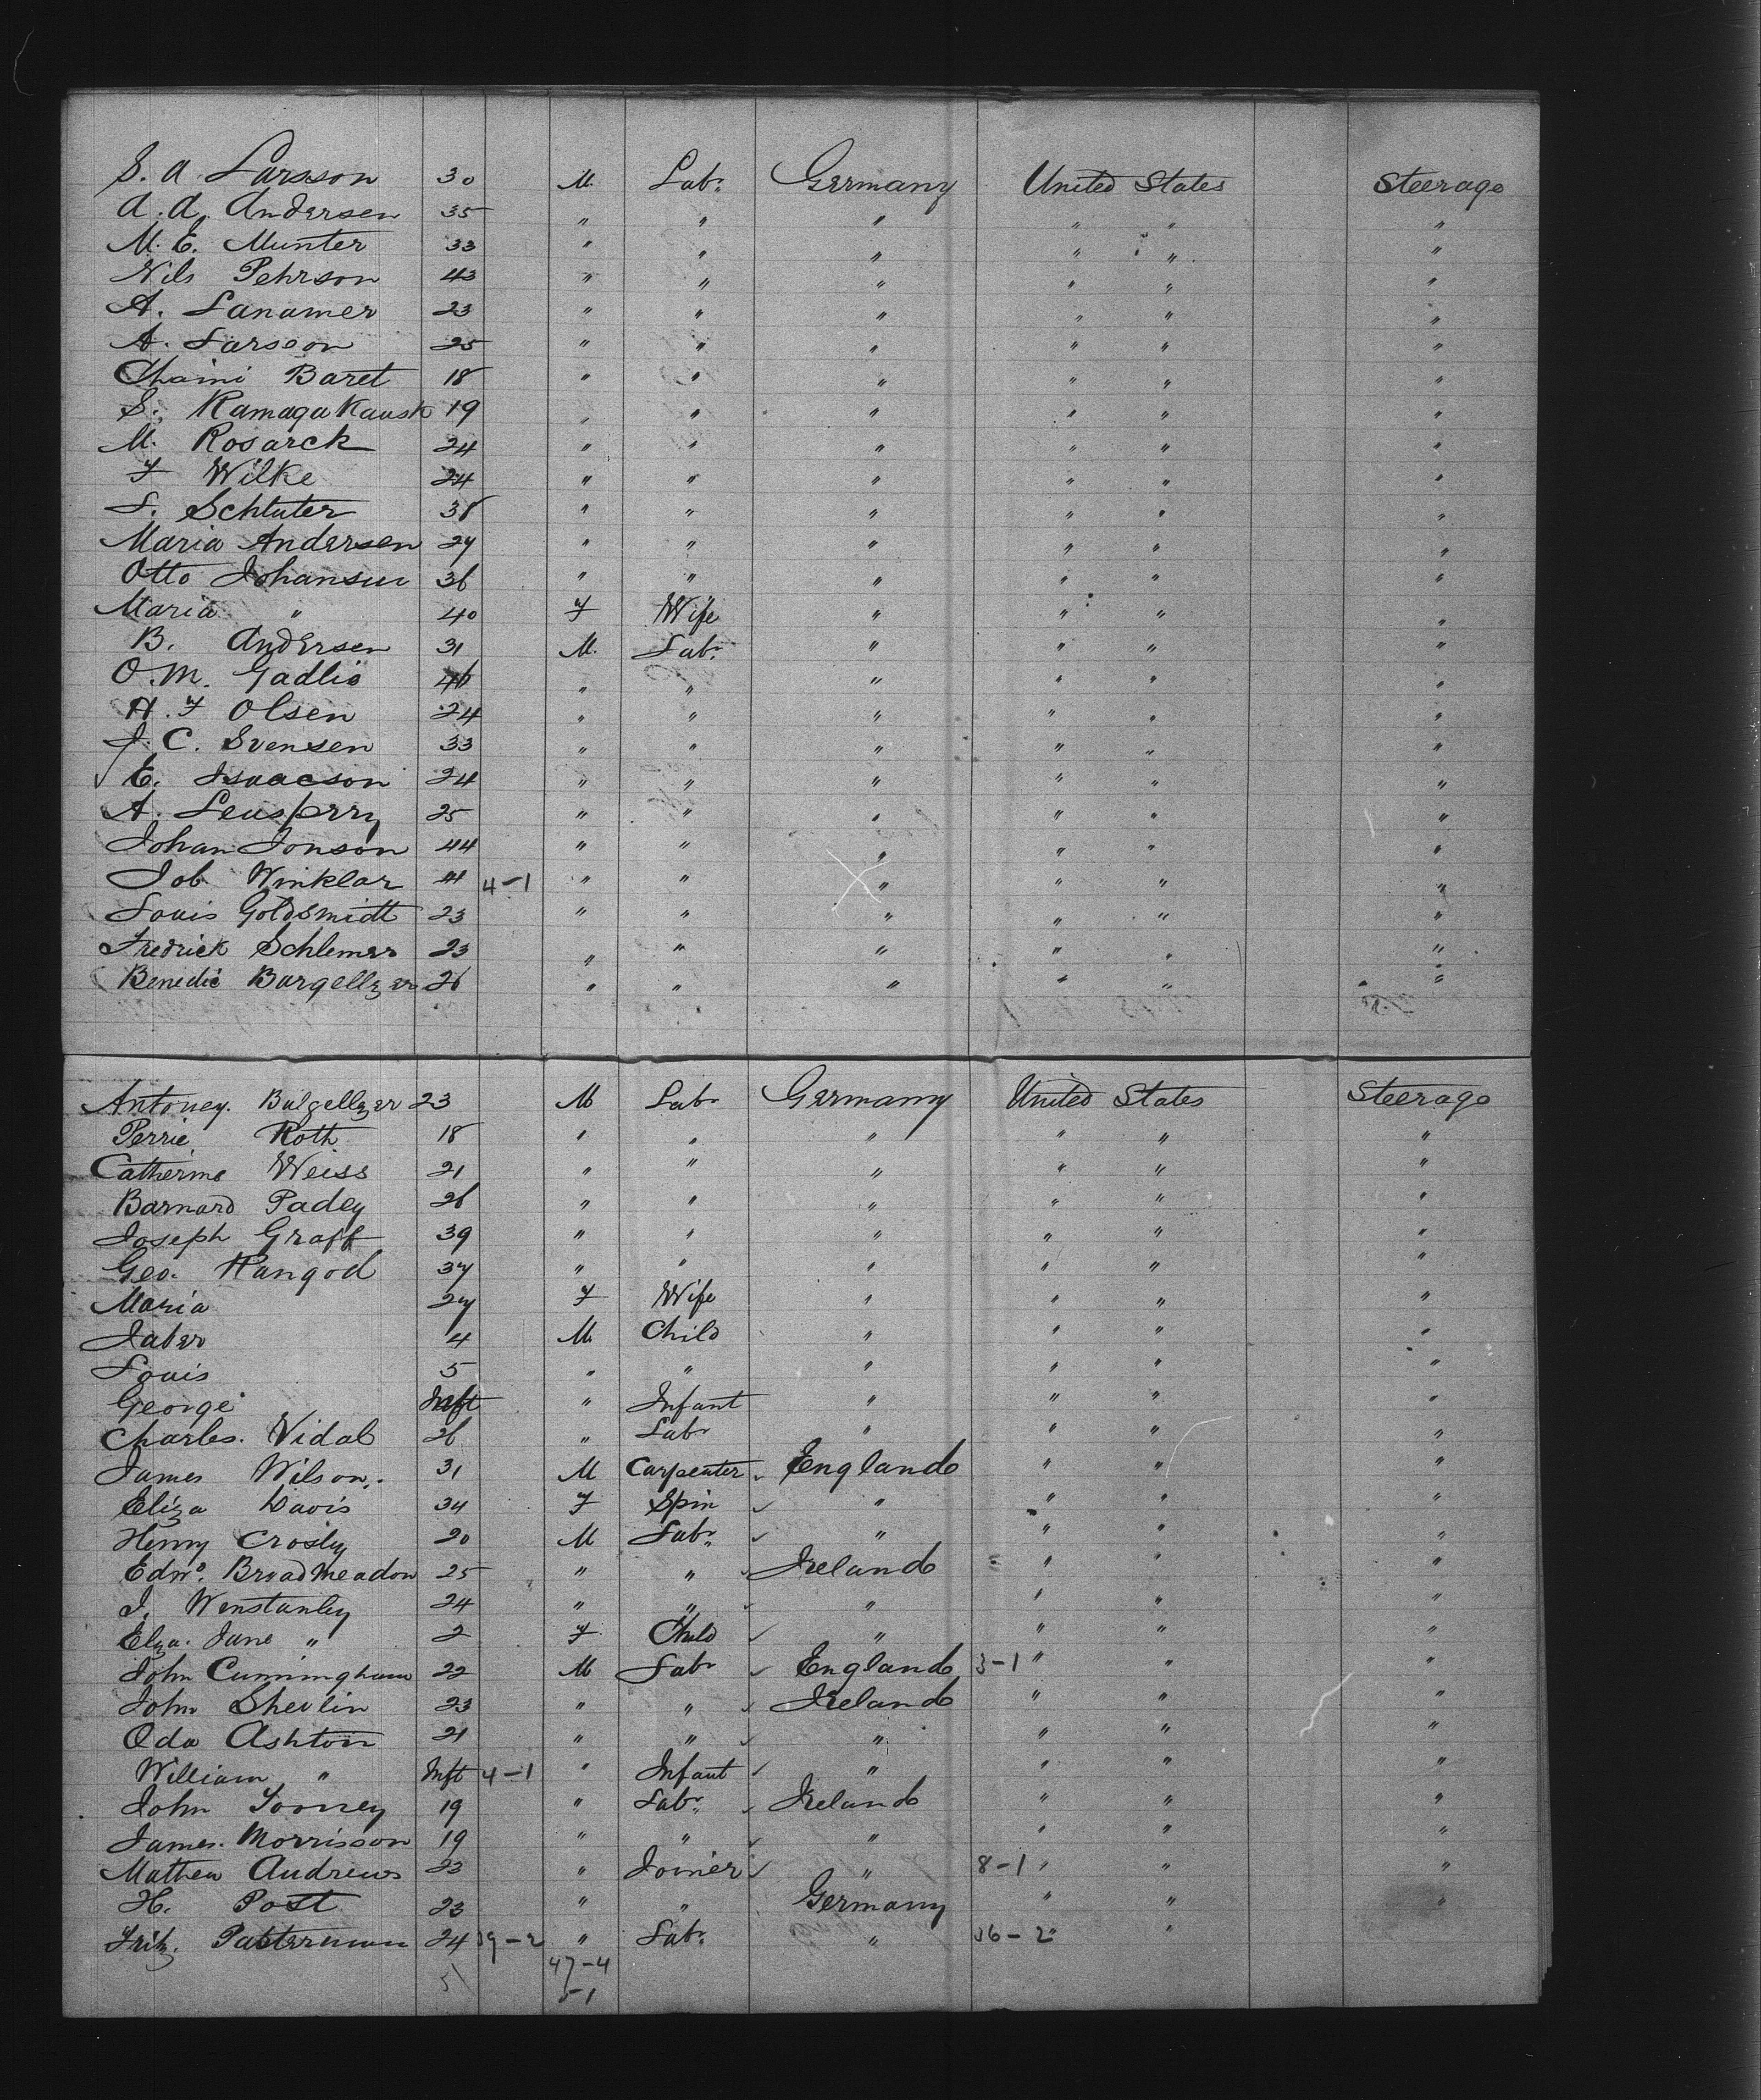 S. A. Larsson 30 M. Lab. Germany United States Steerage
A. A. Andersen 35 " " " " " "
M. E. Munter 33 " " " " " "
Nils Pehrson 43 " " " " " "
A. Lanamer 23 " " " " " "
A. Larsson 25 " " " " " "
Chaimi Baret 18 " " " " " "
S. Ramaga Kausk 19 " " " " " "
M. Rosarck 24 " " " " " "
F Wilke 24 " " " " " "
L. Schluter 38 " " " " " "
Maria Andersen 27 " " " " " "
Otto Johansen 36 " " " " " "
Maria " 40 F Wife " " " "
B. Andersen 31 M. Lab. " " " "
O. M. Gadlio 46 " " " " " "
H. F Olsen 24 " " " " " "
J. C. Svensen 33 " " " " " "
E. Isaacson 24 " " " " " "
A. Leusperry 25 " " " " " "
Johan Jonson 44 " " " " " "
Job Winklar 41 4-1 " " " " " "
Louis Goldsmidt 23 " " " " " "
Fredrick Schlemer 23 " " " " " "
Benedic Burgellzer 26 " " " " " "
Antoney. Bulgellzer 23 M Lab Germany United States Steerage
Perrie Roth 18 " " " " " "
Catherine Weiss 21 " " " " " "
Barnard Padey 26 " " " " " "
Joseph Graff 39 " " " " " "
Geo. Rangod 37 " " " " " "
Maria 27 F Wife " " " "
Jaber 4 M. Child " " " "
Louis 5 " " " " " "
George Inft " Infant " " " "
Charles. Vidal 26 " Lab " " " "
James Wilson. 31 M Carpenter England " " "
Eliza Davis 34 F Spin " " " "
Henry Crosby 20 M Lab. " " " "
Edwd. Broadmeadow 25 " " Ireland " " "
J. Winstanley 24 " " " " " "
Elza. Jane " 2 F. Child " " " "
John Cunningham 22 M Lab England 3-1 " " "
John Shevlin 23 " " Ireland " " "
Oda Ashton 21 " " " " " "
William " Inft 4-1 " Infant " " " "
John Tooney 19 " Lab. Ireland " " "
James. Morrisson 19 " " " " " "
Mathew Andrews 23 " Joiner " 8-1 " " "
H. Post 23 " " Germany " " "
Fritz. Patterman 24 39-2 " Lab. " 36-2 " "
51 47-4
5-1